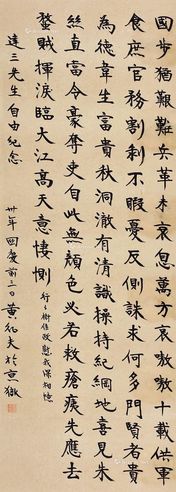 國步猶艱難兵革未衰息萬方哀嗷嗷十載供軍
食庶官務割剝不暇憂反側誅求何多門賢者貴
為德韋生富春秋洞澈有清識操持紀綱地喜見朱
絲直當令豪奪吏自此無顏色必若救瘡痍先應去
蟊賊揮淚臨大江高天意悽惻行行樹佳政慰我深相憶
達三先生自由紀念
卅年國慶前三日黃夫於京獄